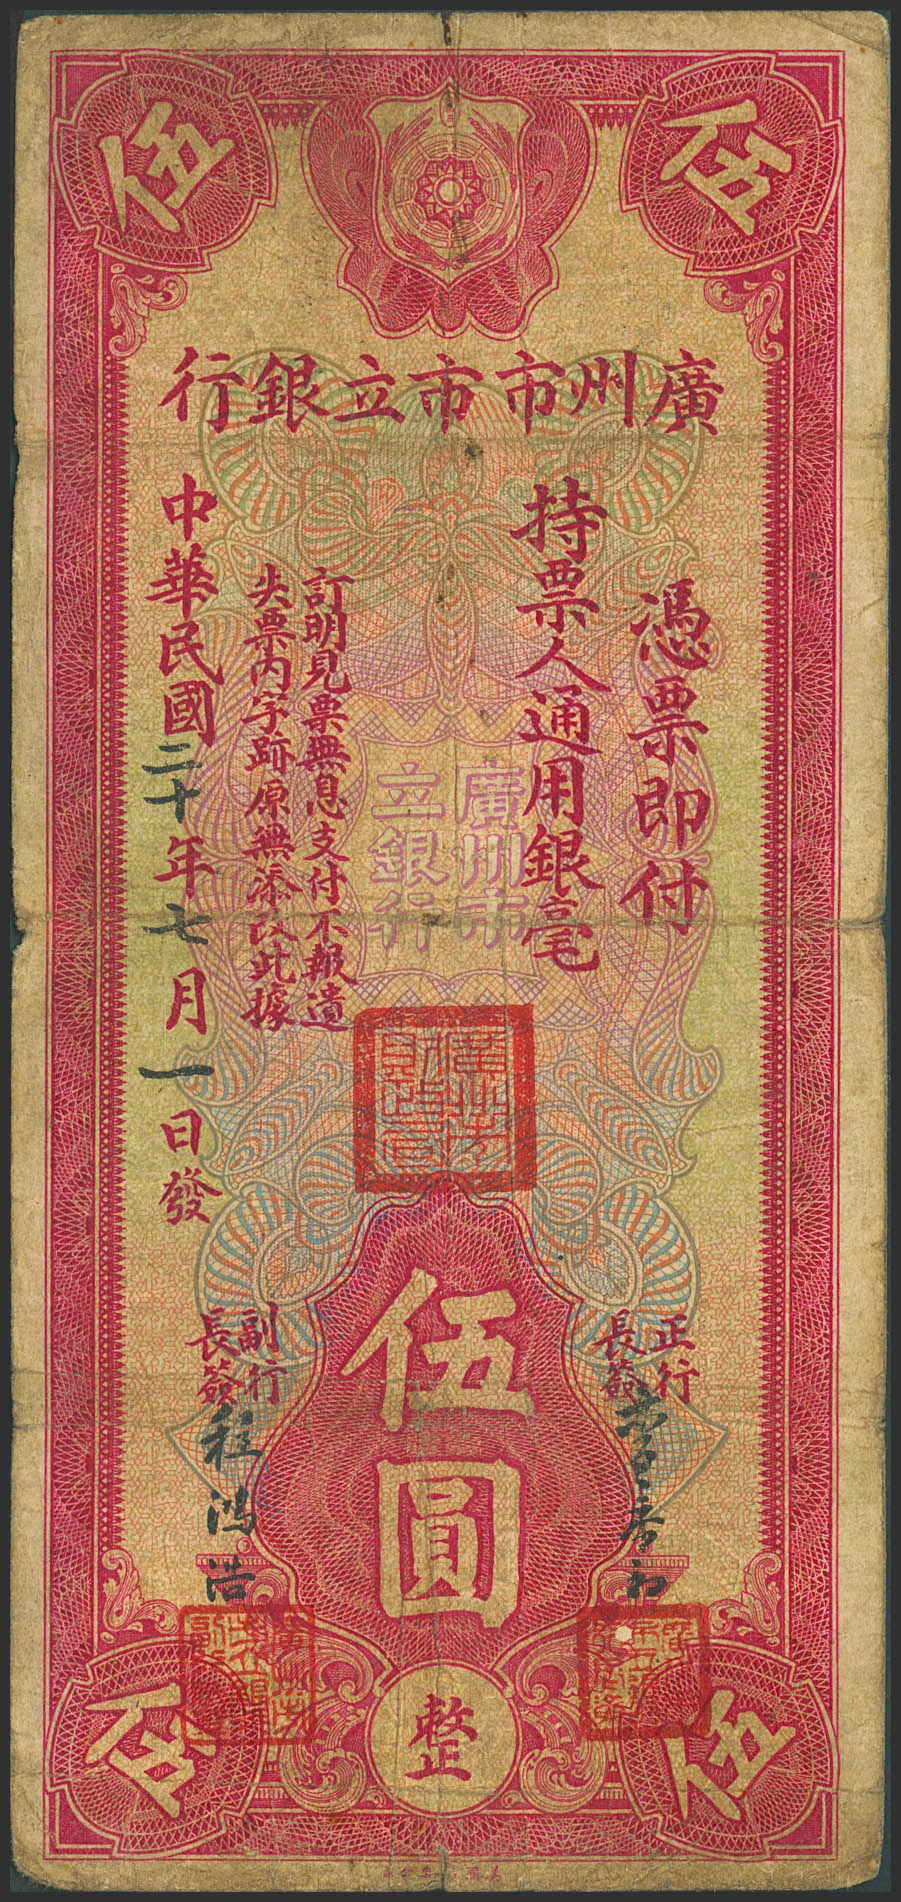 伍
伍
廣州市市立銀行
憑票即付
持票人通用銀毫
廣州市
立銀行
訂明見票無息支付不報遺
失票內字跡原無添改此據
中華民國二十年七月一日發
伍圓
整
正行
長簽
副行
長簽
程鴻浩
伍
伍